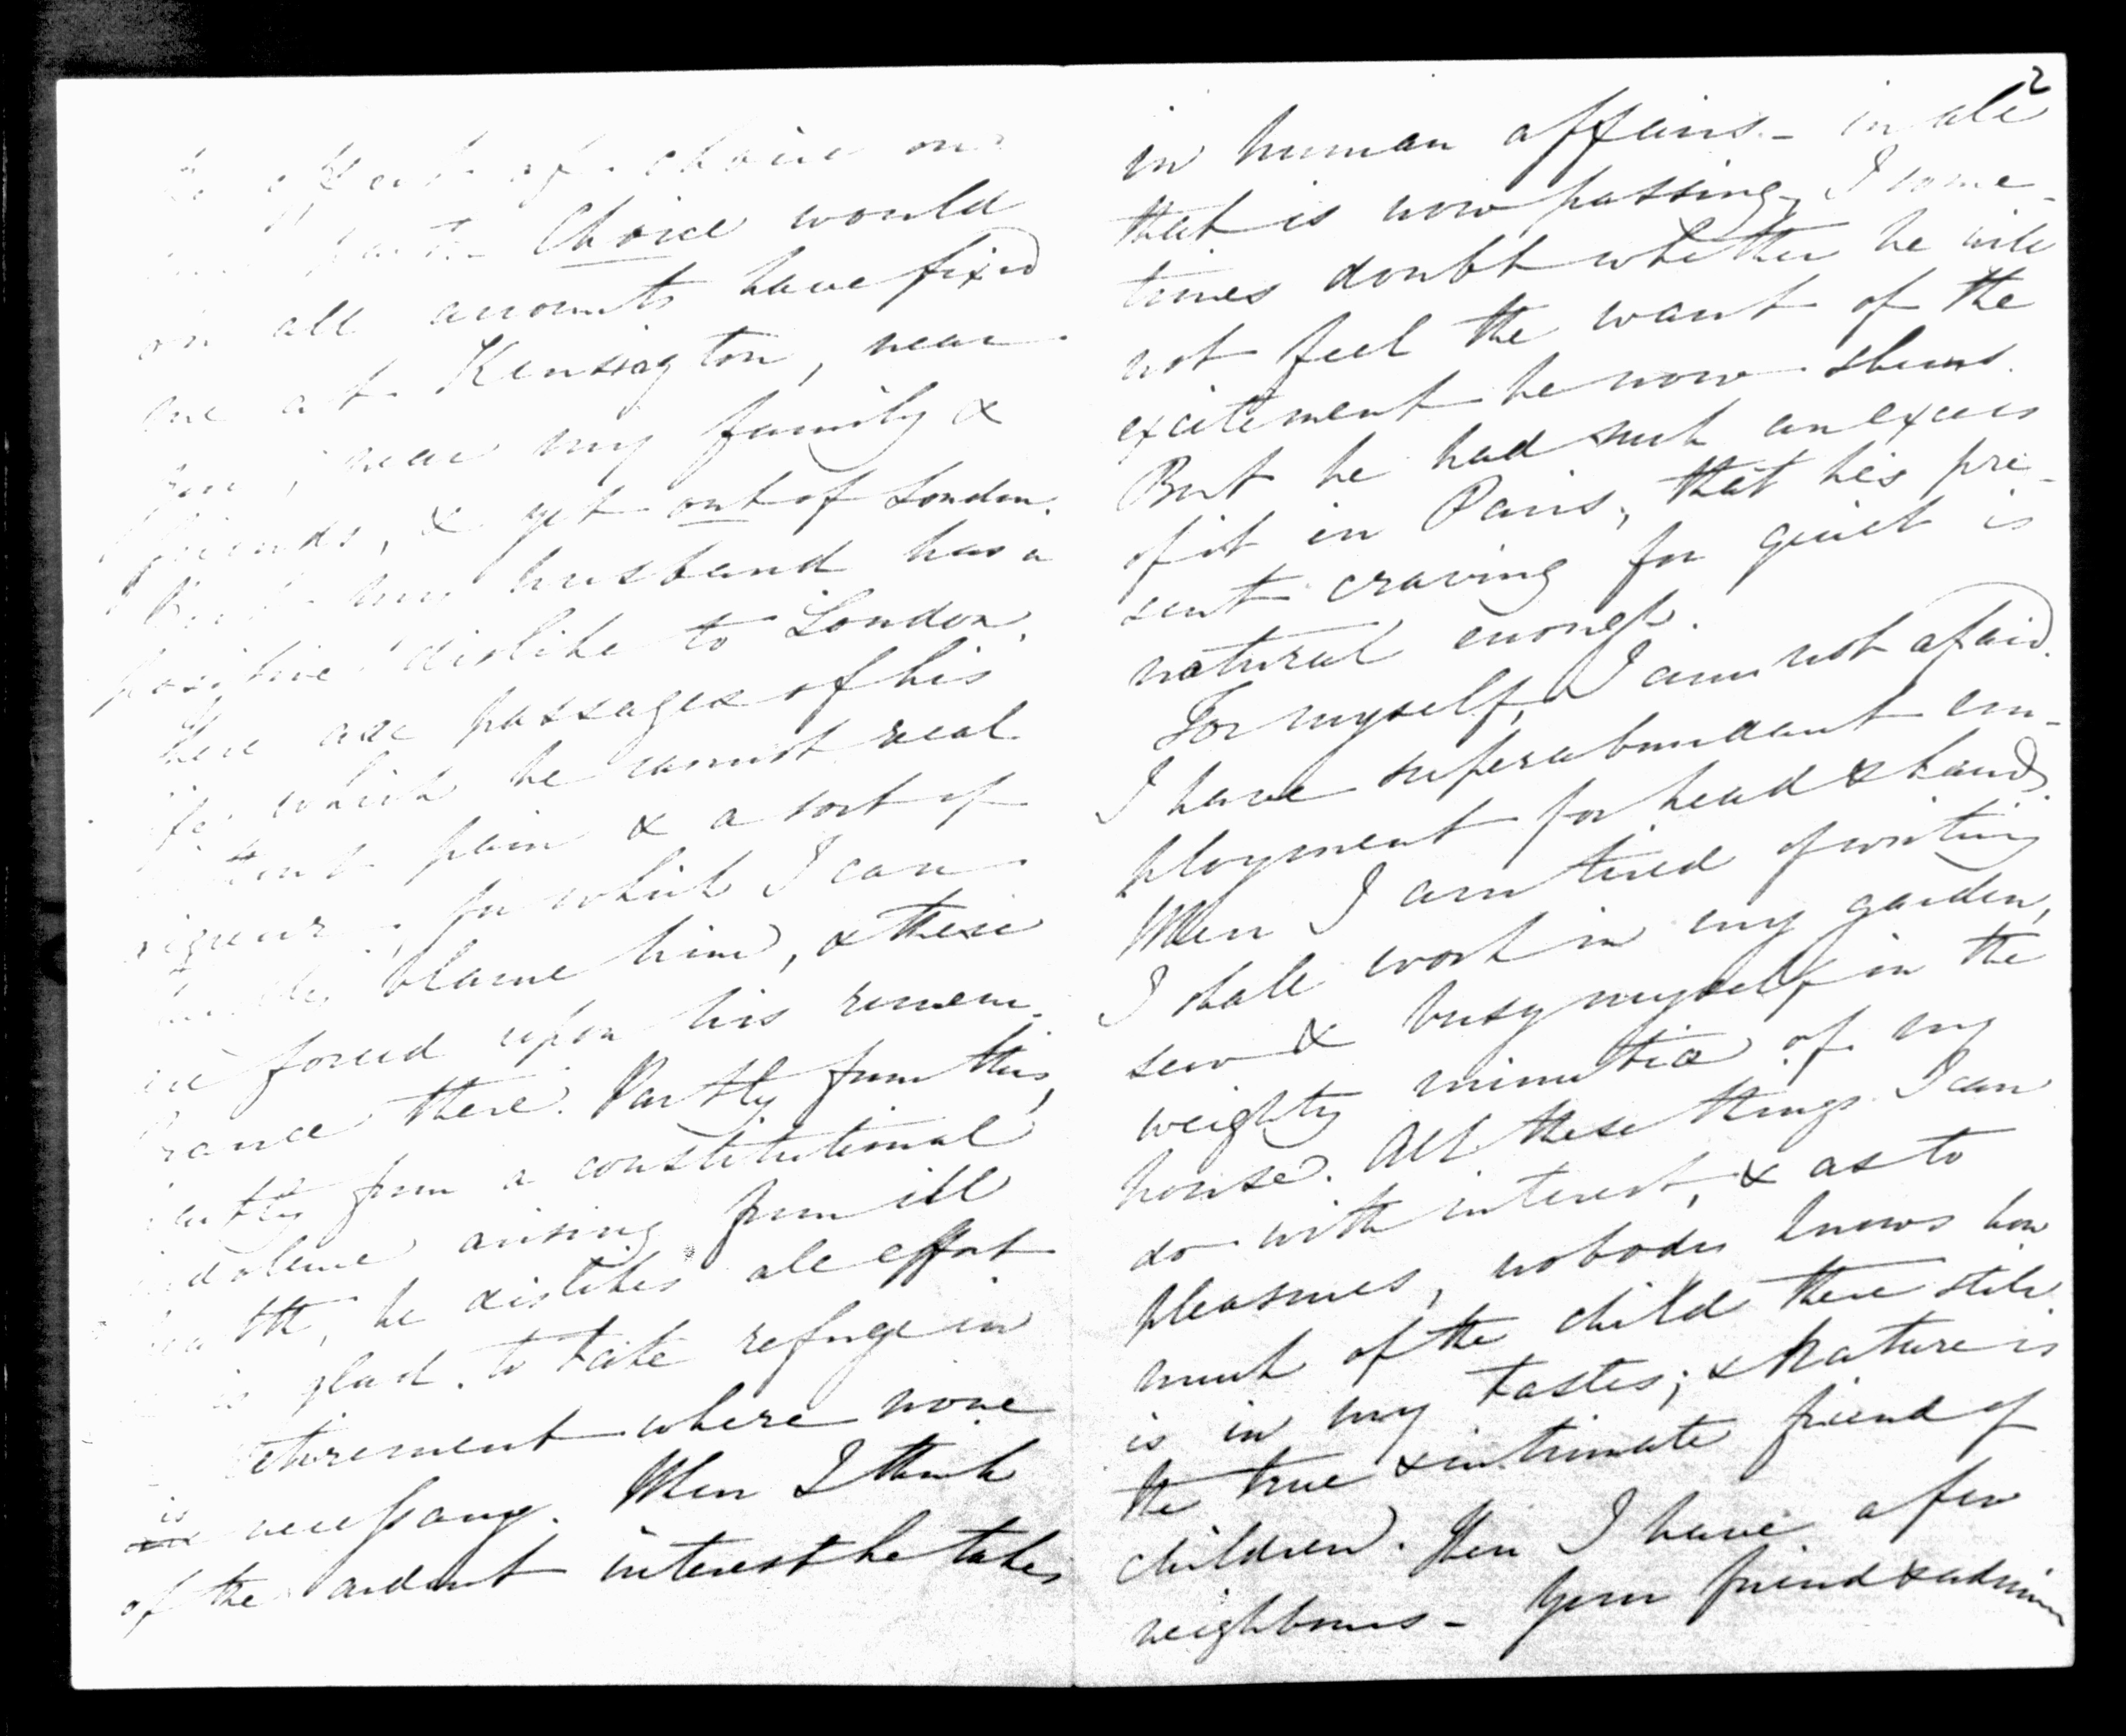 effect of choice on
part. Choice would
on all accounts have fixed
me at Kensington, near
you, near my family &
friends, & yet out of London.
But my husband has a
positive dislike to London.
There are passages of his
life which he cannot recal
without pain & a sort of
, for which I can
hardly blame him, & these
are forced upon his remem-
brance there. Partly from this,
partly from a constitutional
indolence arising from ill
health, he dislikes all effort
is glad to take refuge in
retirement where none
is necessary. When I think
of the ardent interest he takes
2
in human affairs - in all
that is now passing, I some-
times doubt whether he will
not feel the want of the
excitement he now shuns.
But he had such an excess
of it in Paris, that his pre-
sent craving for quiet is
natural enough.
For myself, I am not afraid.
I have superabundant em-
ployment for head & hands.
When I am tired of writing
I shall work in my garden,
sew & busy myself in the
weighty minutiae of my
house. All these things I can
do with interest, & as to
pleasures, nobody knows how
much of the child there still
is in my tastes; & Nature is
the true & intimate friend of
children. Then I have a few
neighbours - Your friend & admirer